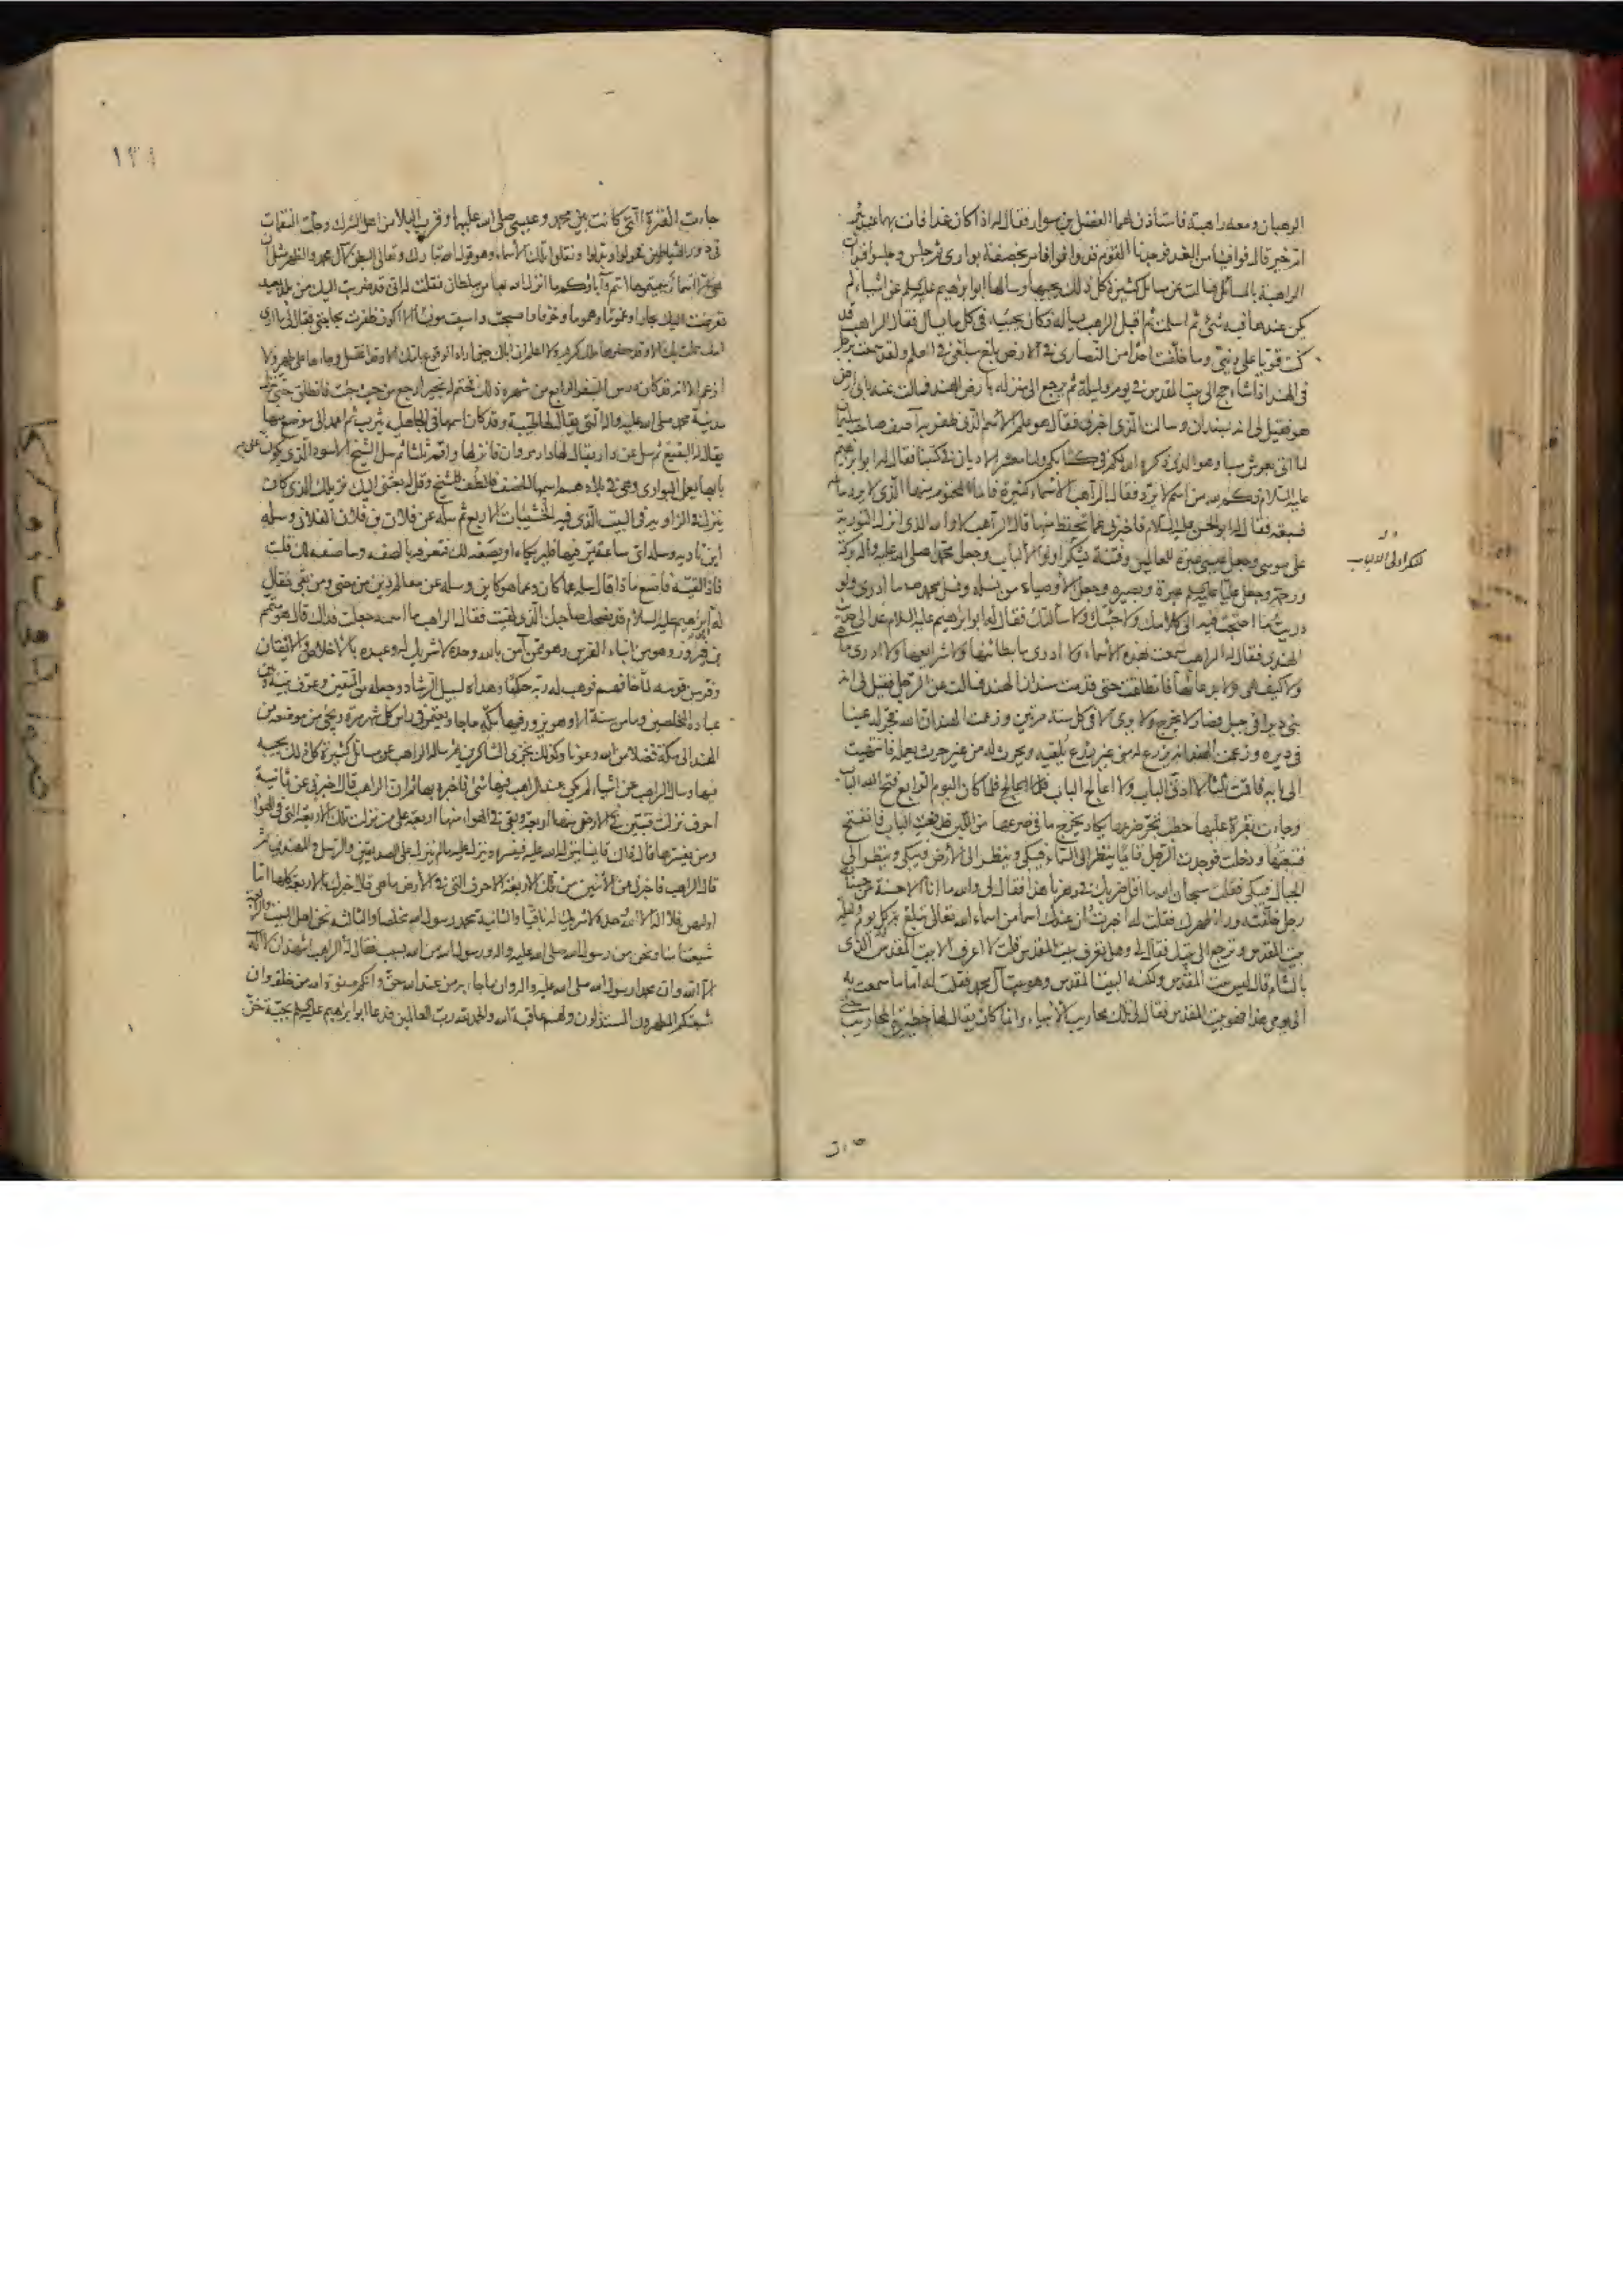 الرهبان ومعه راهبة فاستأذن لهما الفضل بن سوار فقال له اذا كان غدا فأت بهما عند بئر
ام خير قال فوافينا من الغد فوجدنا القوم قد وافوا فامر بخصفة بواري ثم جلس وجلسوا فبدأت
الراهبة بالمسائل فسألت عن مسائل كثيرة كل ذلك يجيبها وسألها ابو ابراهيم عليه السلام عن اشياء لم
يكن عندها فيه شئ ثم اسلمت ثم اقبل الراهب يسأله فكان يجيبه في كل ما يسأل فقال الراهب قد
كنت قويا على ديني وما خلفت احدا من النصارى في الارض يبلغ مبلغي في العلم ولقد سمعت برجل
في الهند اذا شاء حج الى بيت المقدس في يوم وليلة ثم يرجع الى منزله بارض الهند فسألت عنه باي ارض
هو فقيل لي انه بسندان وسألت الذي اخبرني فقال هو علم الاسم الذي ظفر به آصف صاحب سليمان
لما اتى بعرش سبا وهو الذي ذكره الله لكم في كتابكم ولنا معشر الاديان في كتبنا فقال له ابو ابراهيم
عليه السلام فكم لله من اسم لا يرد فقال الراهب الاسماء كثيرة فاما المحتوم منها الذي لا يرد سائله
فسبعة فقال له ابو الحسن عليه السلام فاخبرني عما تحفظ منها قال الراهب لا والله الذي انزل التورية
على موسى وجعل عيسى عبرة للعالمين وفتنة لشكر اولوا الالباب وجعل محمدا صلى الله عليه وآله بركة
ورحمة وجعل عليا عليه السلام عبرة وبصيرة وجعل الاوصياء من نسله ونسل محمد ما ادري ولو
دريت ما احتجت فيه الى كلامك ولا جئتك ولا سألتك فقال له ابو ابراهيم عليه السلام عد الى حديث
الهندي فقال له الراهب سمعت بهذه الاسماء ولا ادري ما بطائنها ولا شرايعها ولا ادري ما هي
ولا كيف هي ولا بدعائها فانطلقت حتى قدمت سندان الهند فسألت عن الرجل فقيل لي انه
بنى ديرا في جبل فصار لا يخرج ولا يرى الا في كل سنة مرتين وزعمت الهند ان الله فجر له عينا
في ديره وزعمت الهند انه يزرع له من غير زرع يلقيه ويحرث له من غير حرث يعمله فانتهيت
الى بابه فاقمت ثلثا لا ادق الباب ولا اعالج الباب فلما كان اليوم الرابع فتح الله الباب
وجاءت بقرة عليها حطب تجر ضرعها يكاد يخرج ما في ضرعها من اللبن فدفعت الباب فانفتح
فتبعتها ودخلت فوجدت الرجل قائما ينظر الى السماء فيبكي وينظر الى الارض فيبكي وينظر الى
الجبال فيبكي فقلت سبحان الله ما اقل ضربك في دهرنا هذا فقال لي والله ما انا الا حسنة من حسنات
رجل خلفته وراء ظهرك فقلت له اخبرت ان عندك اسما من اسماء الله تعالى تبلغ به كل يوم وليلة
بيت المقدس وترجع الى بيتك فقال لي وهل تعرف بيت المقدس قلت لا اعرف الا بيت المقدس الذي
بالشام قال ليس بيت المقدس ولكنه البيت المقدس وهو بيت آل محمد فقلت له اما ما سمعت به
الى يومي هذا فهو بيت المقدس فقال لي تلك محاريب الانبياء وانما كان يقال لها حظيرة المحاريب حتى
لشكر اولى الالباب
١٣٨
جاءت الفترة التي كانت بين محمد وعيسى صلى الله عليهما وقرب البلاء من اهل الشرك وحلت النقمات
في دور الشياطين فحولوا وبدلوا ونقلوا تلك الاسماء وهو قول الله تبارك وتعالى البطن لآل محمد والظهر مثل ان
هي الا اسماء سميتموها انتم وآباؤكم ما انزل الله بها من سلطان فقلت له اني قد ضربت اليك من بلد بعيد
تعرضت اليك بحارا وغموما وهموما وخوفا واصبحت وامسيت مؤيسا الا اكون ظفرت بحاجتي فقال لي ما ارى
امك حملت بك الا وقد حضرها ملك كريم ولا اعلم ان اباك حين اراد الوقوع بامك الا وقد اغتسل وجاءها على طهر ولا
ازعم الا انه قد كان درس السفر الرابع من شهره ذلك فختم له بخير ارجع من حيث جئت فانطلق حتى تنزل
مدينة محمد صلى الله عليه وآله التي يقال لها طيبة وقد كان اسمها في الجاهلية يثرب ثم اعمد الى موضع منها
يقال له البقيع ثم سل عن دار يقال لها دار مروان فانزلها واقم ثلثا ثم سل الشيخ الاسود الذي يكون على
بابها يعمل البواري وهي في بلادهم اسمها الخصف فالطف بالشيخ وقل له بعثني اليك نزيلك الذي كان
ينزل في الزاوية في البيت الذي فيه الخشيبات الاربع ثم سله عن فلان بن فلان الفلاني وسله
اين ناديه وسله اي ساعة يمر فيها فليريكاه او يصفه لك فتعرفه بالصفة وساصفه لك قلت
فاذا لقيته فاصنع ماذا قال سله عما كان وعما هو كاين وسله عن معالم دين من مضى ومن بقى فقال
له ابو ابراهيم عليه السلام قد نصحك صاحبك الذي لقيت فقال الراهب ما اسمه جعلت فداك قال هو متمم
بن فيروز وهو من ابناء الفرس وهو ممن آمن بالله وحده لا شريك له وعبده بالاخلاص والايقان
وفر من قومه لما خافهم فوهب له ربه حكما وهداه لسبيل الرشاد وجعله من المتقين وعرف بينه وبين
عباده المخلصين وما من سنة الا وهو يزور فيها مكة حاجا ويعتمر في راس كل شهر مرة ويجئ من موضعه من
الهند الى مكة فضلا من الله وعونا وكذلك يجزي الشاكرين ثم سأله الراهب عن مسائل كثيرة كل ذلك يجيبه
فيها وسأل الراهب عن اشياء لم يكن عند الراهب فيها شئ فاخبره بها ثم ان الراهب قال اخبرني عن ثمانية
احرف نزلت فتبين في الارض منها اربعة وبقى في الهواء منها اربعة على من نزلت تلك الاربعة التي في الهواء
ومن يفسرها قال ذاك قائمنا ينزله الله عليه فيفسره وينزل عليه ما لم ينزل على الصديقين والرسل والمهتدين ثم
قال الراهب فاخبرني عن الاثنين من تلك الاربعة الاحرف التي في الارض ما هي قال اخبرك بالاربعة كلها اما
اولهن فلا اله الا الله وحده لا شريك له باقيا والثانية محمد رسول الله مخلصا والثالثة نحن اهل البيت والرابعة
شيعتنا منا ونحن من رسول الله صلى الله عليه وآله ورسول الله من الله بسبب فقال له الراهب اشهد ان لا اله
الا الله وان محمدا رسول الله صلى الله عليه وآله وان ما جاء به من عند الله حق وانكم صفوة الله من خلقه وان
شيعتكم المطهرون المستبدلون ولهم عاقبة الله والحمد لله رب العالمين فدعا ابو ابراهيم عليه السلام بجبة خز